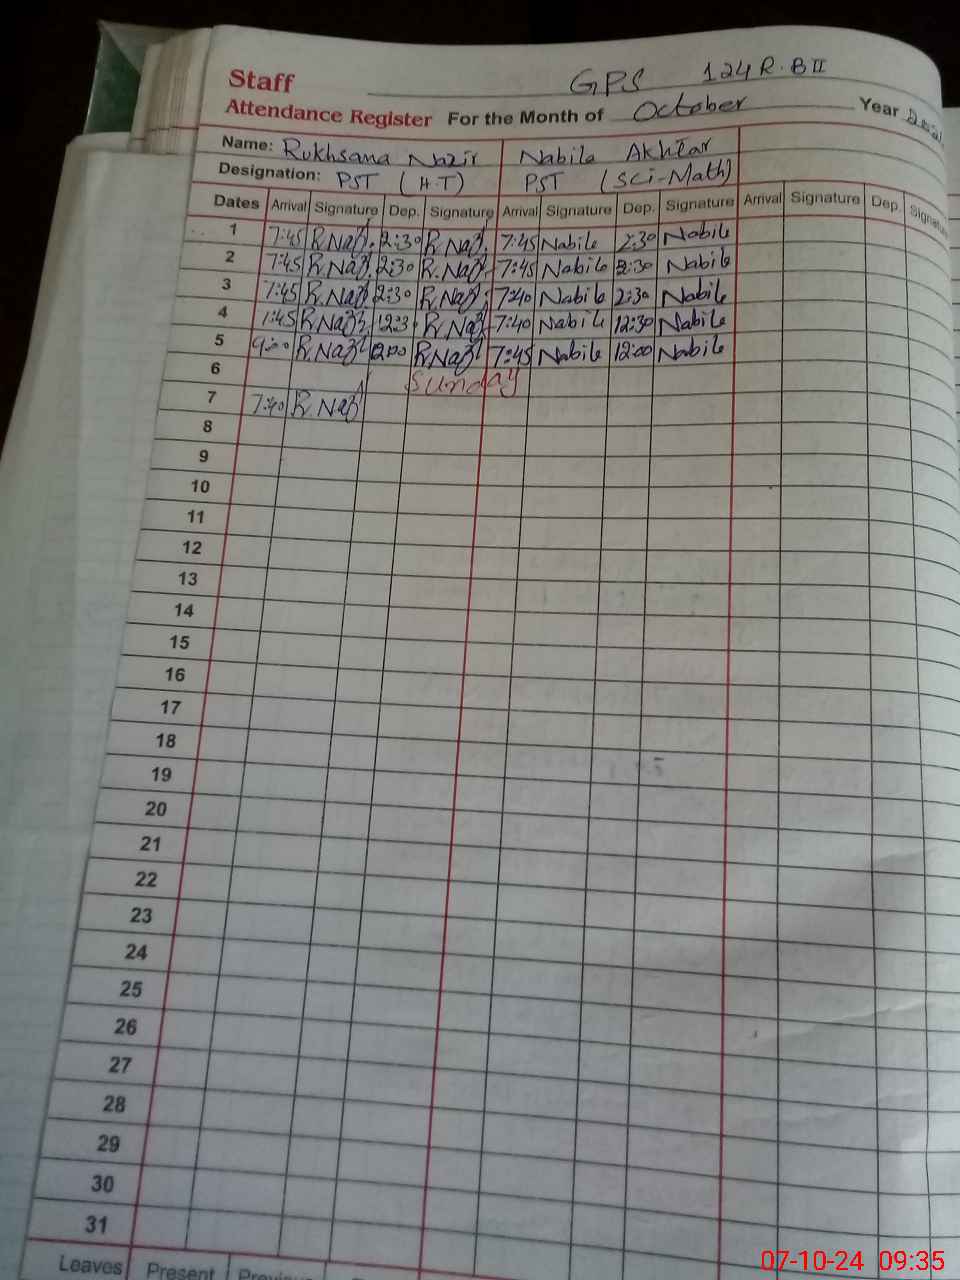 Staff GPS 124 R.B II
Attendance Register For the Month of October Year
Name: Rukhsana Nazir Nabila Akhtar
Designation: PST (H.T) PST (Sci-Math)
Dates Arrival Signature Dep. Signature Arrival Signature Dep. Signature Arrival Signature Dep. Signature
1 7:45 R.Naz 2:30 R.Naz 7:45 Nabila 2:30 Nabila
2 7:45 R.Naz 2:30 R.Naz 7:45 Nabila 2:30 Nabila
3 7:45 R.Naz 2:30 R.Naz 7:40 Nabila 2:30 Nabila
4 7:45 R.Naz 12:3 R.Naz 7:40 Nabila 12:30 Nabila
5 9:00 R.Naz 12:00 R.Naz 7:45 Nabila 12:00 Nabila
6 Sunday
7 7:40 R.Naz
8
9
10
11
12
13
14
15
16
17
18
19
20
21
22
23
24
25
26
27
28
29
30
31
Leaves Present
07-10-24 09:35